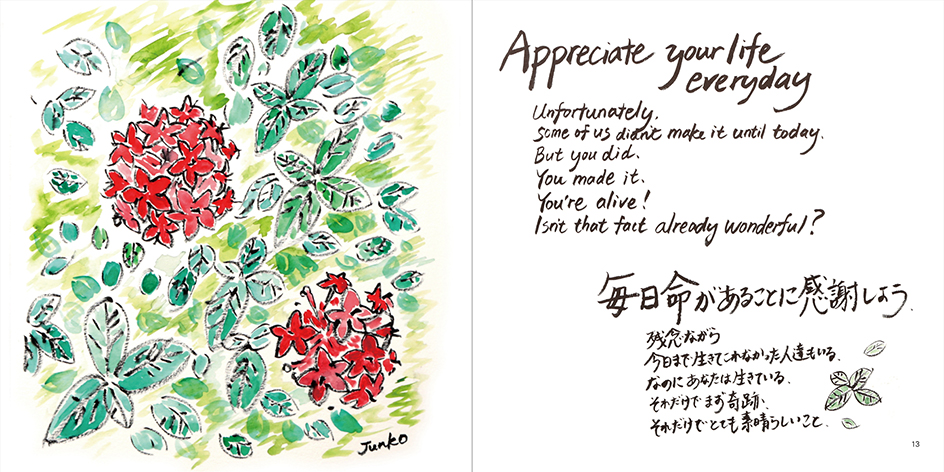 Junko
Appreciate your life
everyday
Unfortunately,
some of us didn't make it until today.
But you did.
You made it.
You're alive!
Isn't that fact already wonderful?
毎日命があることに感謝しよう.
残念ながら
今日まで生きてこれなかった人達もいる、
なのにあなたは生きている、
それだけでまず奇跡、
それだけでとても素晴らしいこと、
13